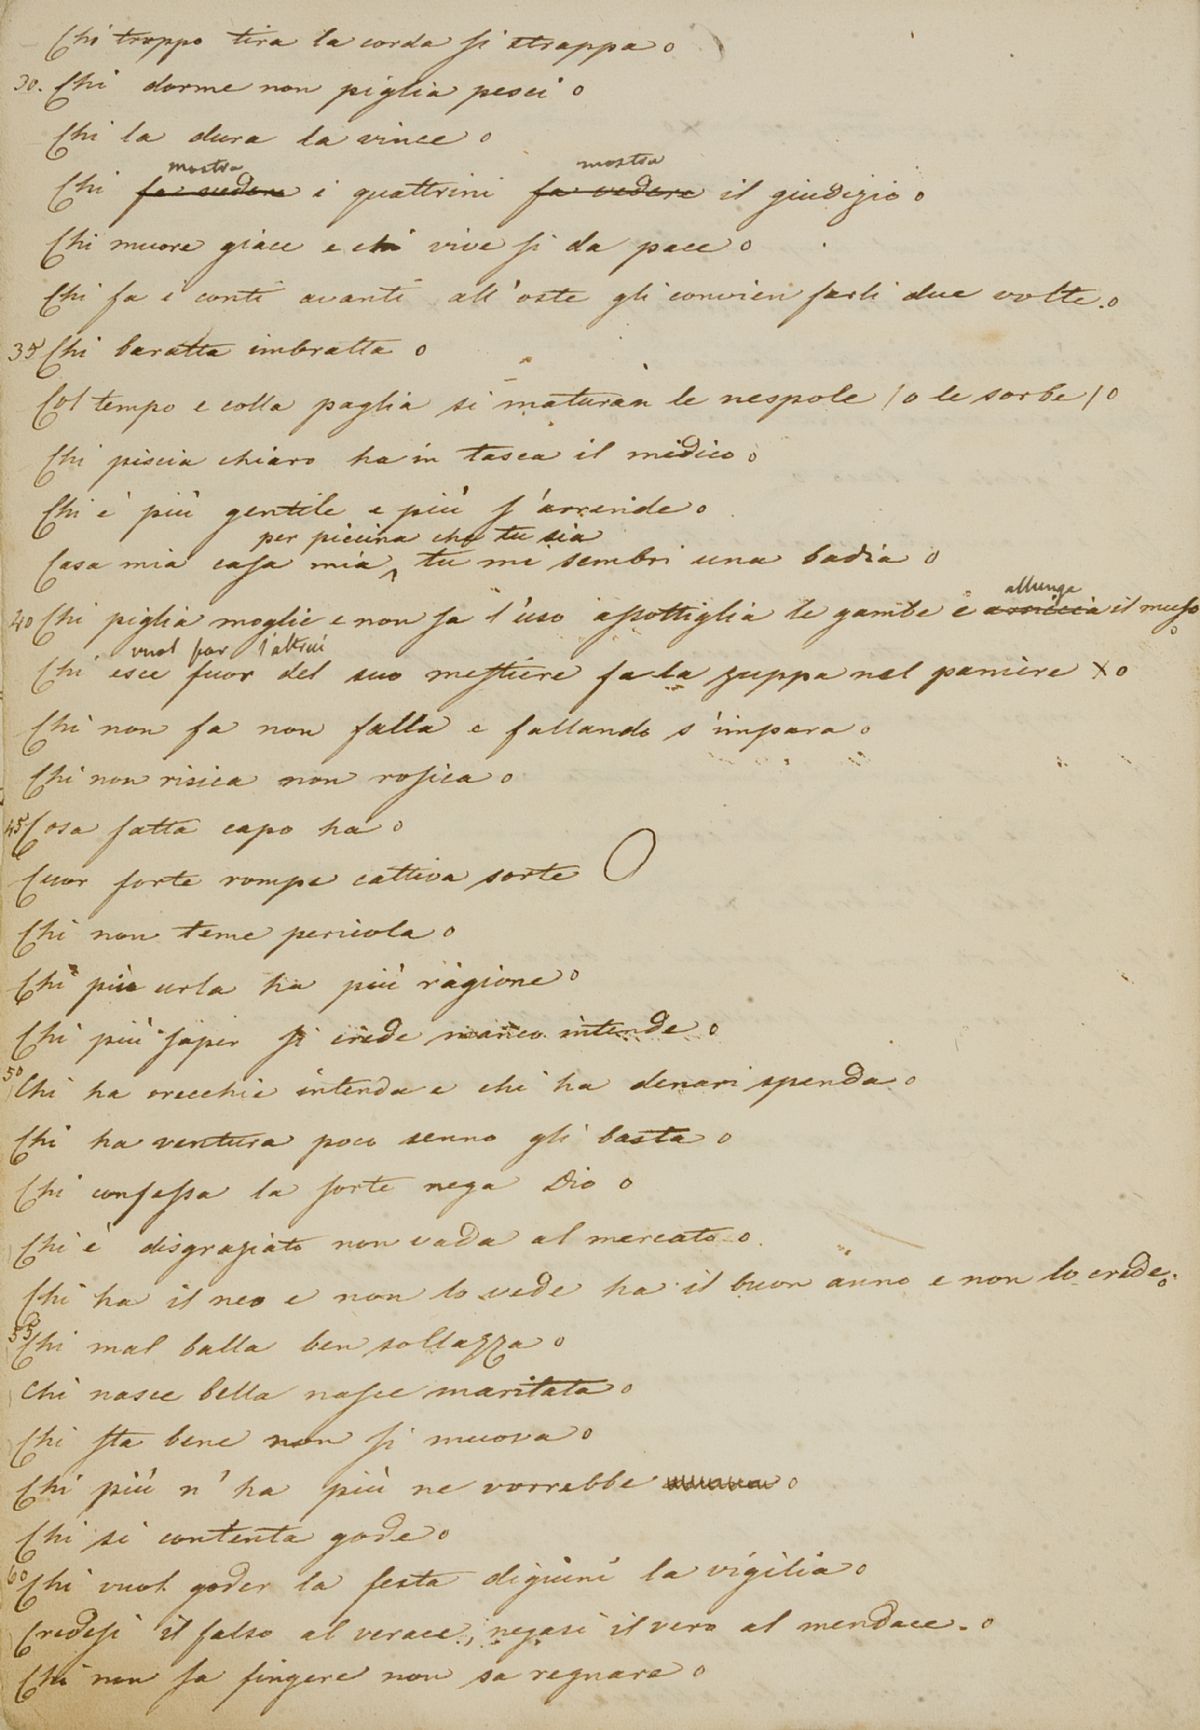 Chi troppo tira la corda si strappa o
30. Chi dorme non piglia pesci o
Chi la dura la vince o
mostra mostra
Chi fa vedere i quattrini fa vedere il giudizio o
Chi muore giace e chi vive si da pace o
Chi fa i conti avanti all'oste gli convien farli due volte. o
35 Chi baratta imbratta o
Col tempo e colla paglia si maturan le nespole /o le sorbe/ o
Chi piscia chiaro ha in tasca il medico o
Chi è più gentile e più s'arrende o
per piccina che tu sia
Casa mia casa mia ^ tu mi sembri una badia o
allunga
40 Chi piglia moglie e non sa l'uso assottiglia le gambe e il muso o
vuol far l'altrui
Chi esce fuor del suo mestiere fa la zuppa nel paniere X o
Chi non fa non falla e fallando s'impara o
Chi non risica non rosica o
45 Cosa fatta capo ha o
Cuor forte rompe cattiva sorte O
Chi non teme pericola o
Chi più urla ha più ragione o
Chi più saper si crede manco intende o
50 Chi ha orecchie intenda e chi ha denari spenda o
Chi ha ventura poco senno gli basta o
Chi confessa la sorte nega Dio o
Chi è disgraziato non vada al mercato o
Chi ha il neo e non lo vede ha il buon anno e non lo crede o
55 Chi mal balla ben sollazza o
Chi nasce bella nasce maritata o
Chi sta bene non si muova o
Chi più n'ha più ne vorrebbe o
Chi si contenta gode o
60 Chi vuol goder la festa digiuni la vigilia o
Credesi il falso al verace, negasi il vero al mendace. o
Chi non sa fingere non sa regnare o